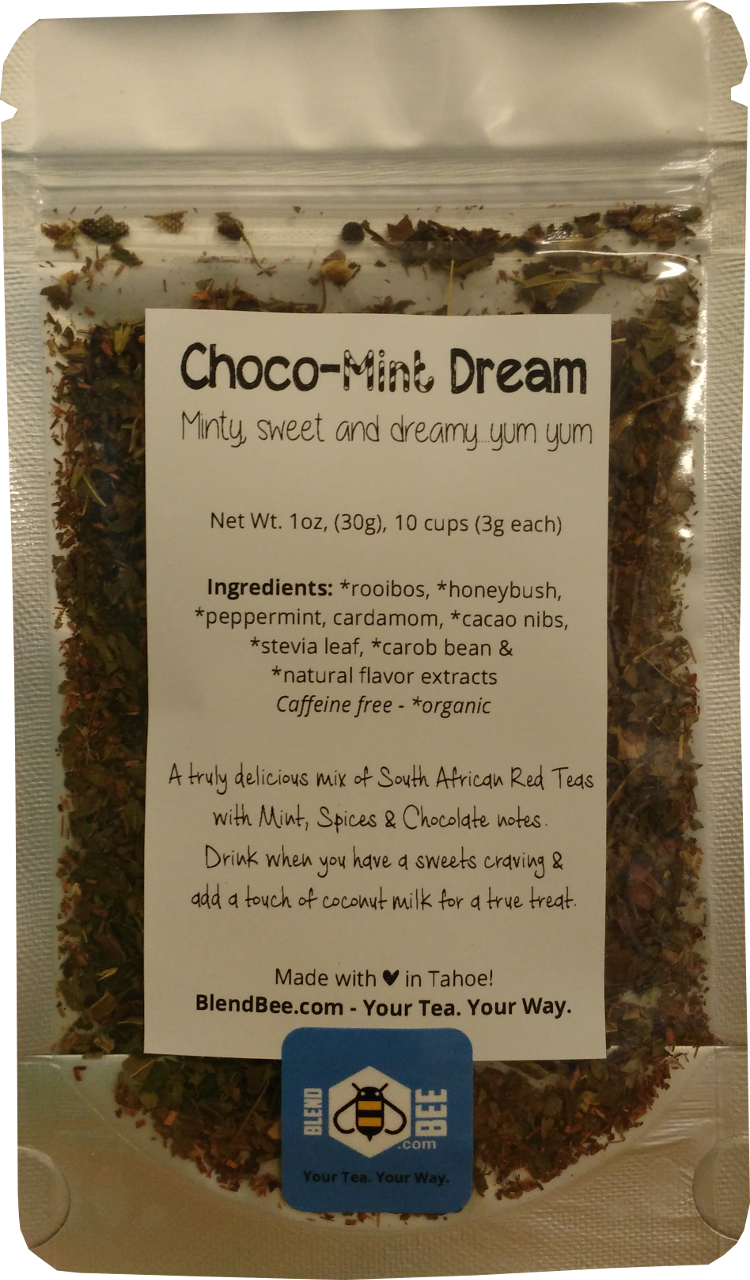 Choco-Mint Dream
Minty, sweet and dreamy...yum yum
Net Wt. 1oz, (30g), 10 cups (3g each)
Ingredients: *rooibos, *honeybush,
*peppermint, cardamom, *cacao nibs,
*stevia leaf, *carob bean &
*natural flavor extracts
Caffeine free - *organic
A truly delicious mix of South African Red Teas
with Mint, Spices & Chocolate notes.
Drink when you have a sweets craving &
add a touch of coconut milk for a true treat.
Made with ♥ in Tahoe!
BlendBee.com - Your Tea. Your Way.
BLEND
BEE
.com
Your Tea. Your Way.